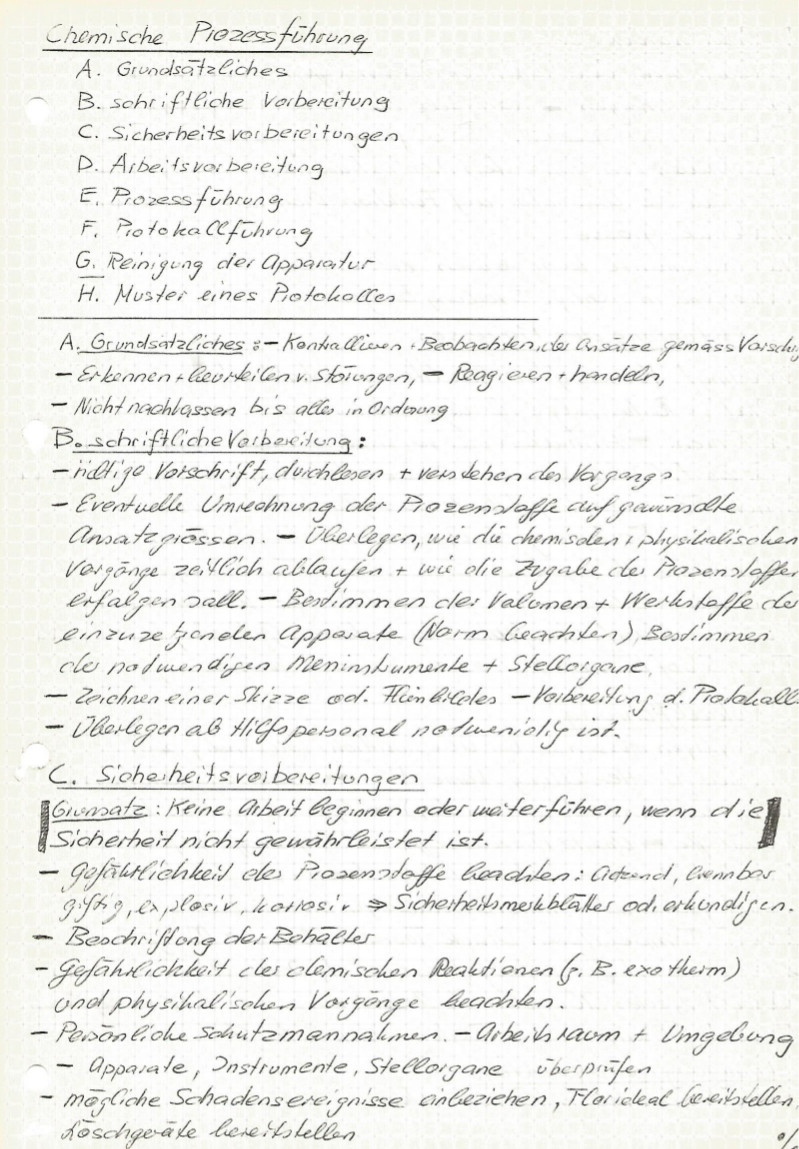 Chemische Prozessführung
A. Grundsätzliches
B. schriftliche Vorbereitung
C. Sicherheitsvorbereitungen
D. Arbeitsvorbereitung
E. Prozessführung
F. Protokollführung
G. Reinigung der Apparatur
H. Muster eines Protokolles
A. Grundsätzliches: - Kontrollieren + Beobachten der Ansätze gemäss
- Erkennen + beurteilen v. Störungen, - Reagieren + handeln,
- Nicht nachlassen bis alles in Ordnung
B. schriftliche Vorbereitung:
- Vorschrift, durchlesen + verstehen des Vorgangs
- Eventuelle Umrechnung der Prozesstoffe auf gewünschte
Ansatzgrössen. - Überlegen, wie die chemischen + physikalischen
Vorgänge zeitlich ablaufen + wie die Zugabe der Prozesstoffe
erfolgen soll. - Bestimmen der Volumen + Werkstoffe der
einzusetzenden Apparate (Norm beachten) Bestimmen
der notwendigen Messinstrumente + Stellorgane,
- Zeichnen einer Skizze od. Fliessbildes - Vorbereitung d. Protokoll.
- Überlegen ob Hilfspersonal notwendig ist.
C. Sicherheitsvorbereitungen
Grunsatz: Keine Arbeit beginnen oder weiterführen, wenn die
Sicherheit nicht gewährleistet ist.
- Gefährlichkeit der Prozesstoffe beachten: ätzend, brennbar
giftig, explosiv, korrosiv ⇒ Sicherheitsmerkblätter od. erkundigen.
- Beschriftung der Behälter
- Gefährlichkeit der chemischen Reaktionen (z. B. exotherm)
und physikalischen Vorgänge beachten.
- Persönliche Schutzmassnahmen. - Arbeitsraum + Umgebung
- Apparate, Instrumente, Stellorgane überprüfen
- mögliche Schadensereignisse einbeziehen, Florideal bereitstellen,
Löschgeräte bereitstellen